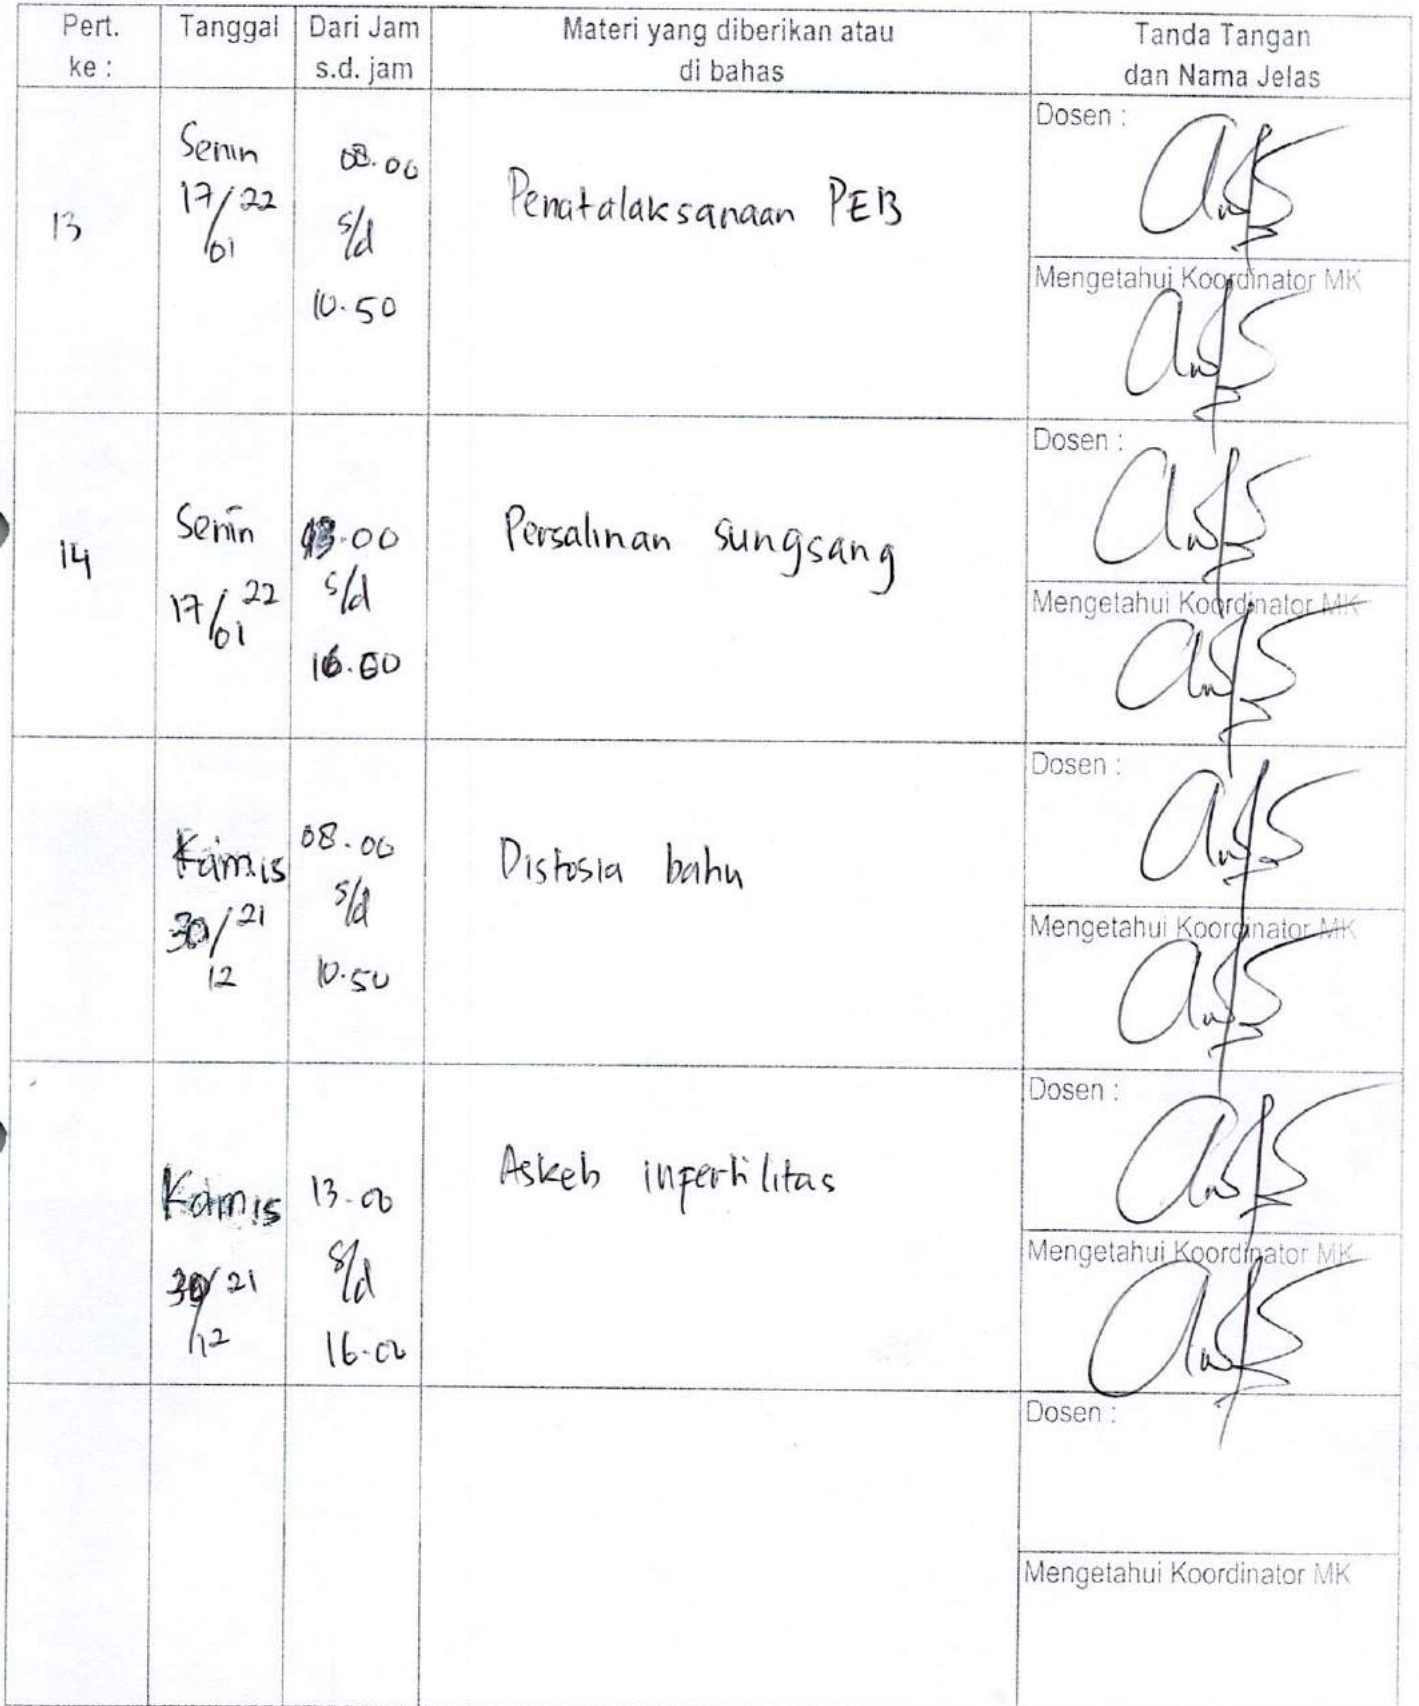 Pert. ke :
Tanggal
Dari Jam s.d. jam
Materi yang diberikan atau di bahas
Tanda Tangan dan Nama Jelas
13
Senin
17/22
01
08.00
s/d
10.50
Penatalaksanaan PEB
Dosen :
Mengetahui Koordinator MK
14
Senin
17/22
01
13.00
s/d
16.00
Persalinan sungsang
Dosen :
Mengetahui Koordinator MK
Kamis
30/21
12
08.00
s/d
10.50
Distosia bahu
Dosen :
Mengetahui Koordinator MK
Kamis
30/21
12
13.00
s/d
16.00
Askeb infertilitas
Dosen :
Mengetahui Koordinator MK
Dosen :
Mengetahui Koordinator MK